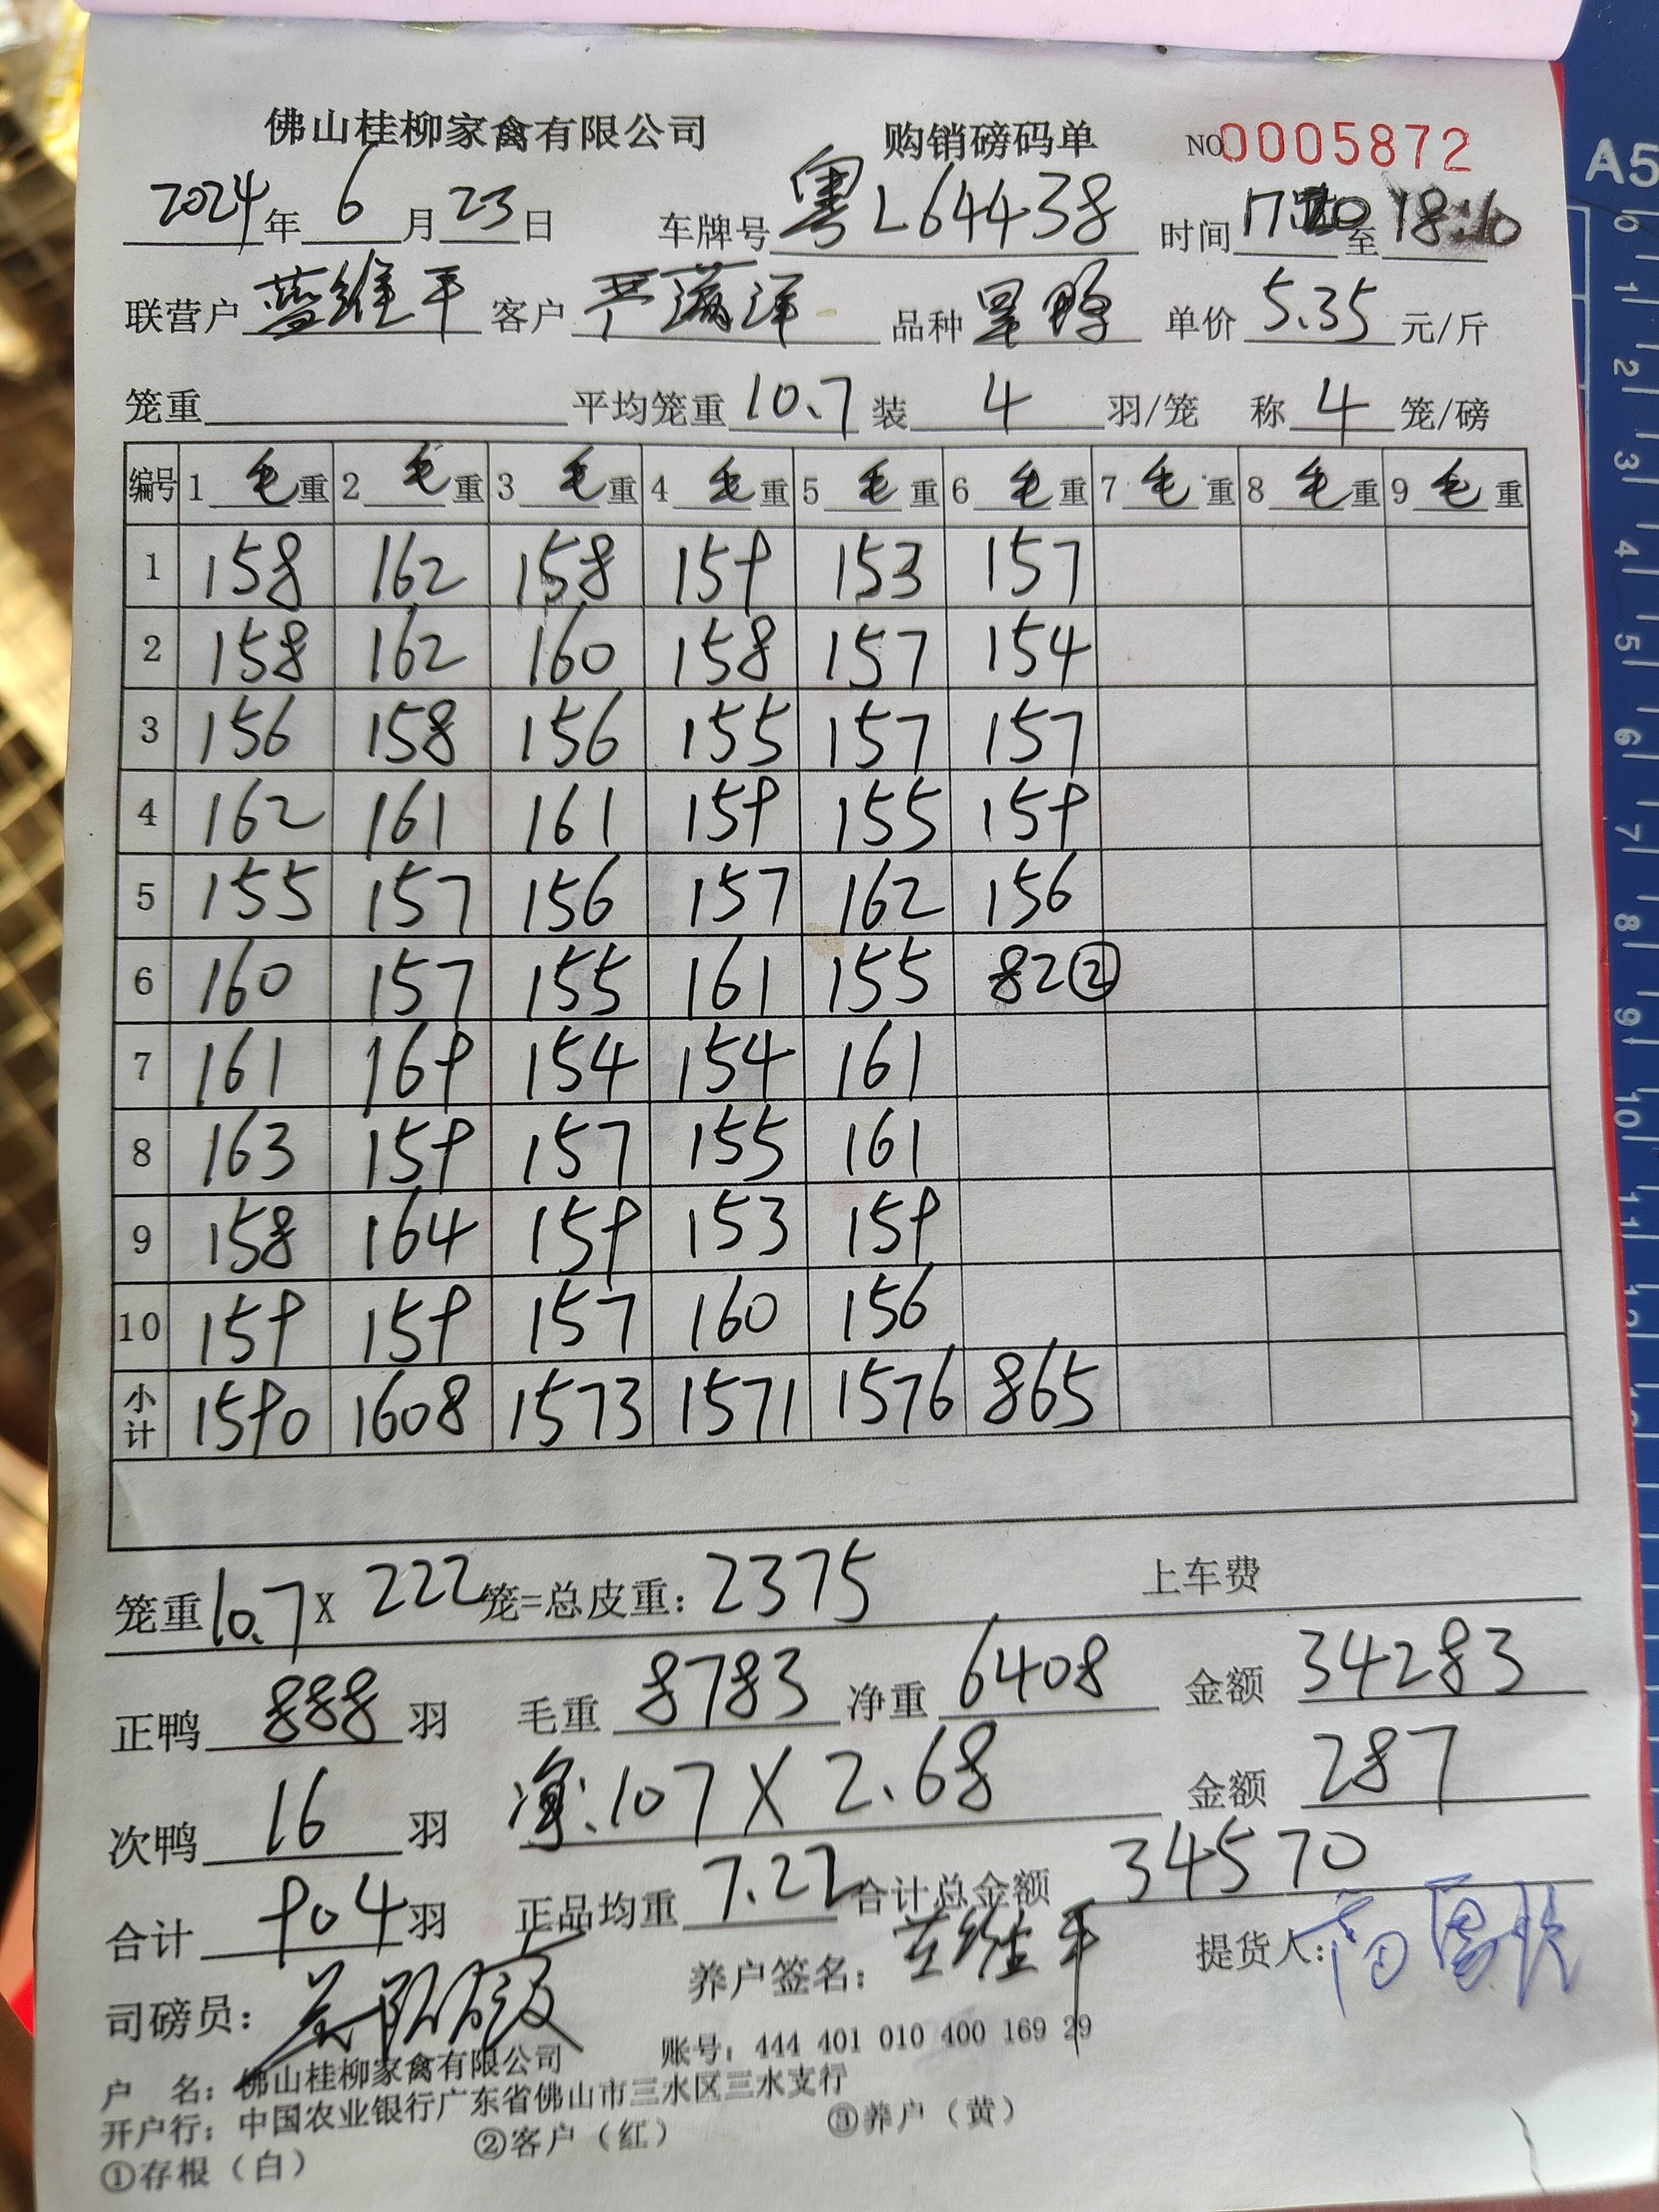 佛山桂柳家禽有限公司 购销磅码单 NO0005872
2024年 6 月 23 日 车牌号 粤L64438 时间 17 至 18:10
联营户 蓝维平 客户 严满洋 品种 单价 5.35 元/斤
笼重 平均笼重 10.7 装 4 羽/笼 称 4 笼/磅
编号 1 毛重 2 毛重 3 毛重 4 毛重 5 毛重 6 毛重 7 毛重 8 毛重 9 毛重
1 158 162 158 159 153 157
2 158 162 160 158 157 154
3 156 158 156 155 157 157
4 162 161 161 159 155 159
5 155 157 156 157 162 156
6 160 157 155 161 155 82②
7 161 169 154 154 161
8 163 159 157 155 161
9 158 164 159 153 159
10 159 159 157 160 156
小计 1590 1608 1573 1571 1576 865
笼重 10.7 X 222 笼=总皮重: 2375 上车费
正鸭 888 羽 毛重 8783 净重 6408 金额 34283
次鸭 16 羽 净:107 X 2.68 金额 287
合计 904 羽 正品均重 7.22 合计总金额 34570
司磅员: 养户签名: 蓝维平 提货人:
户 名: 佛山桂柳家禽有限公司 账号: 444 401 010 400 169 29
开户行: 中国农业银行广东省佛山市三水区三水支行
①存根(白) ②客户(红) ③养户(黄)
A5
0 1 2 3 4 5 6 7 8 9 10 11 12